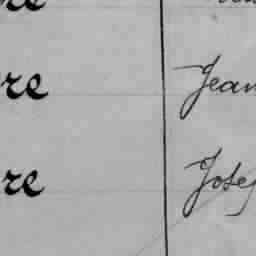 re Jean
re Josep